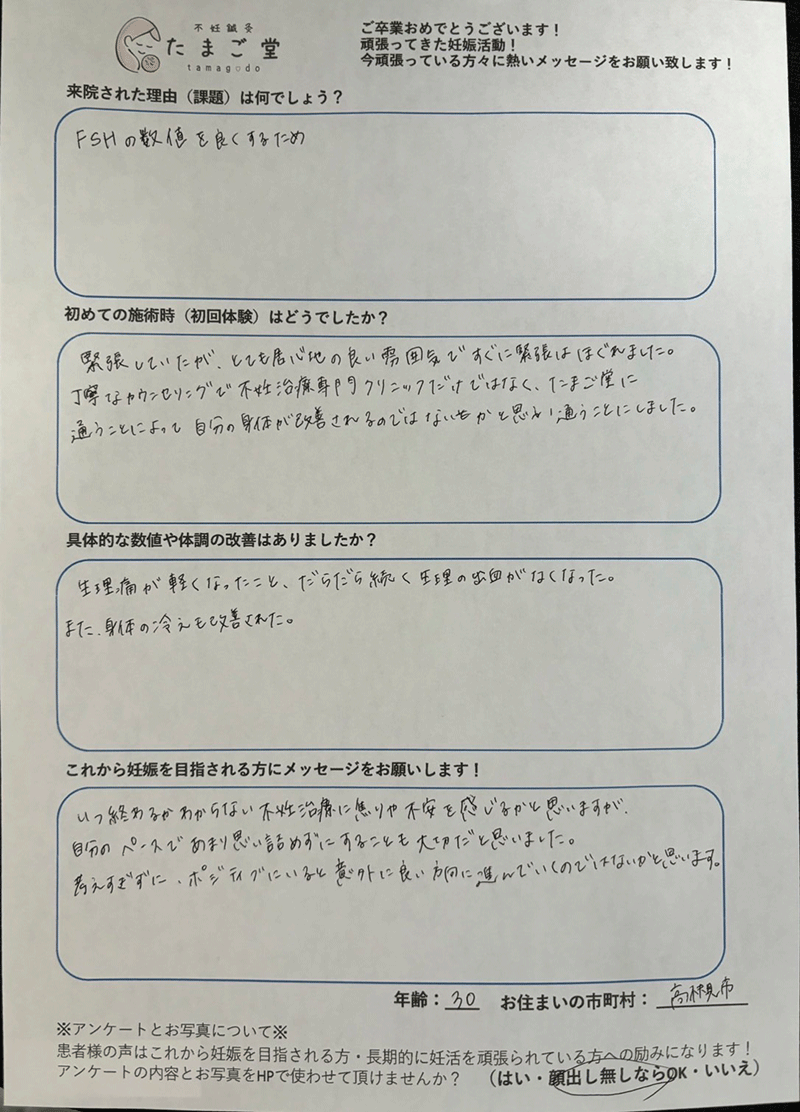 不妊鍼灸
たまご堂
tamagodo
ご卒業おめでとうございます！
頑張ってきた妊娠活動！
今頑張っている方々に熱いメッセージをお願い致します！
来院された理由（課題）は何でしょう？
FSHの数値を良くするため
初めての施術時（初回体験）はどうでしたか？
緊張していたが、とても居心地の良い雰囲気ですぐに緊張はほぐれました。
丁寧なカウンセリングで不妊治療専門クリニックだけではなく、たまご堂に
通うことによって自分の身体が改善されるのではないかと思い通うことにしました。
具体的な数値や体調の改善はありましたか？
生理痛が軽くなったこと、だらだら続く生理の出血がなくなった。
また、身体の冷えも改善された。
これから妊娠を目指される方にメッセージをお願いします！
いつ終わるかわからない不妊治療に焦りや不安を感じるかと思いますが、
自分のペースであまり思い詰めずにすることも大切だと思いました。
考えすぎずに、ポジティブにいると意外に良い方向に進んでいくのではないかと思います。
年齢：30 お住まいの市町村：高槻市
※アンケートとお写真について※
患者様の声はこれから妊娠を目指される方・長期的に妊活を頑張られている方への励みになります！
アンケートの内容とお写真をHPで使わせて頂けませんか？ （はい・顔出し無しならOK・いいえ）